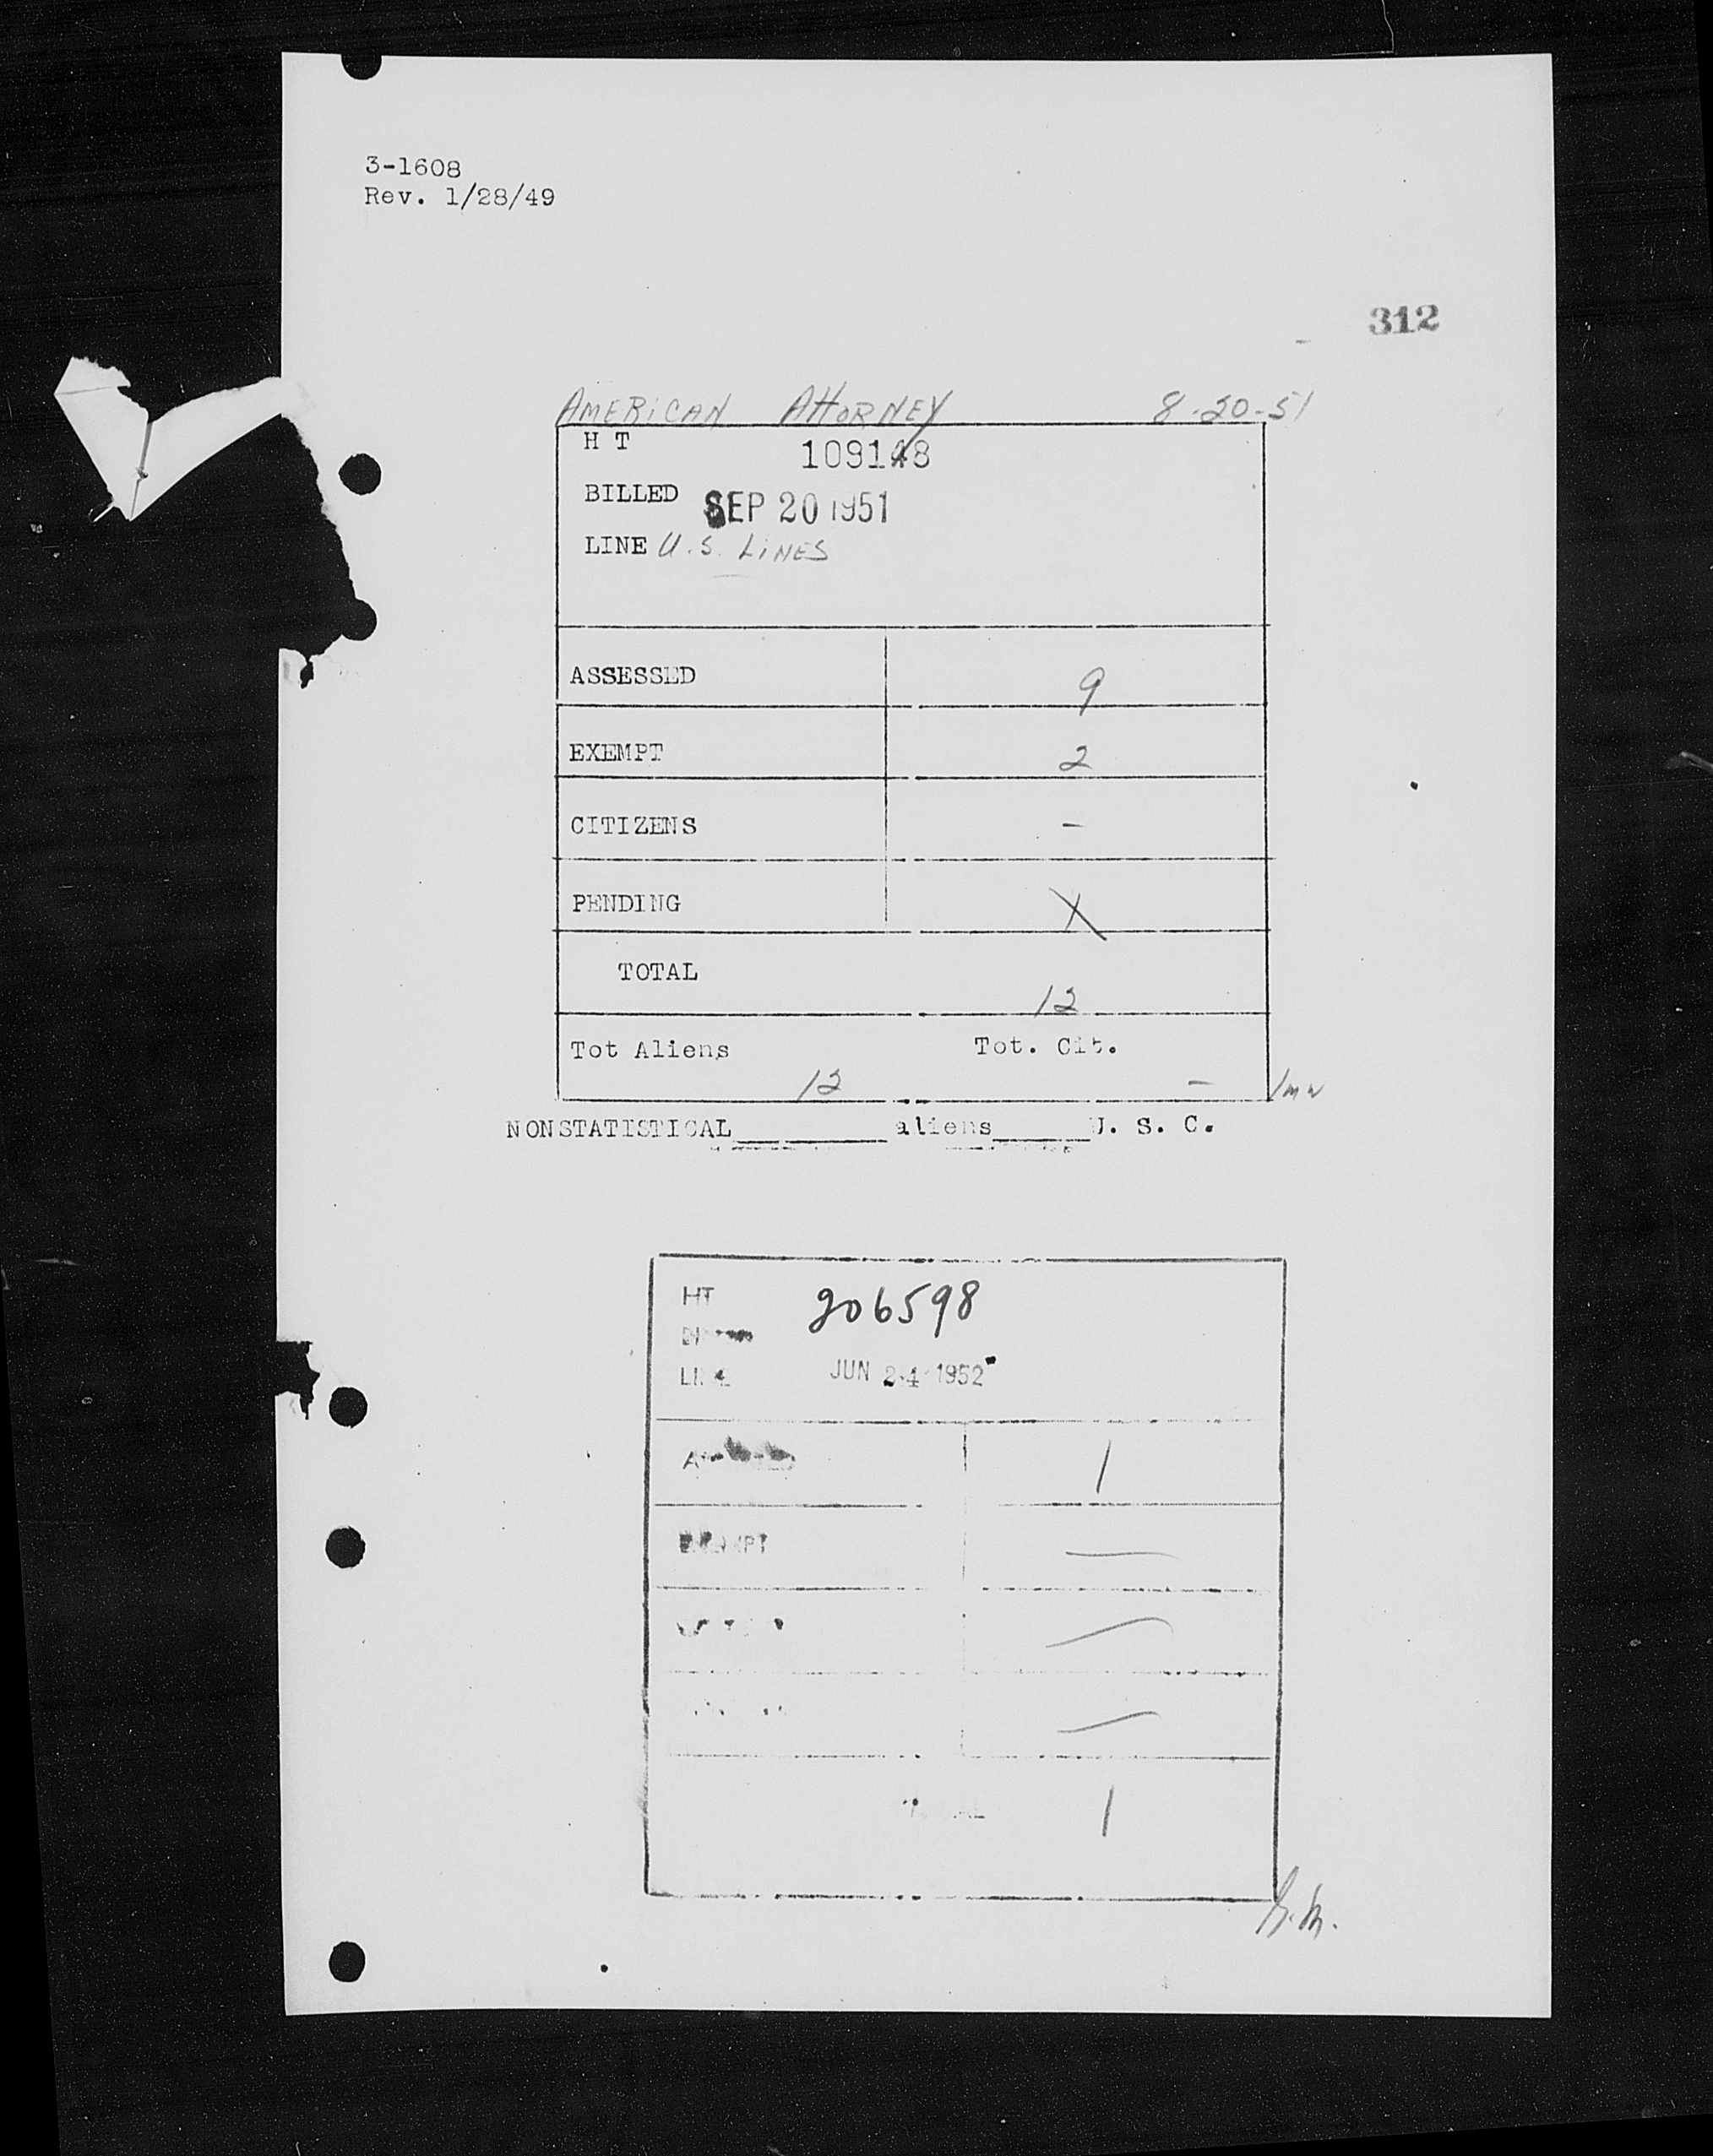 3-1608
Rev. 1/28/49
312
AMERICAN ATTORNEY 8-20-51
H T 109148
BILLED SEP 20 1951
LINE U.S. LINES
ASSESSED 9
EXEMPT 2
CITIZENS -
PENDING
TOTAL 12
Tot Aliens Tot. Cit.
12 -
NONSTATISTICAL aliens U. S. C.
HT 206598
JUN 24 1952
1
EXEMPT
TOTAL 1